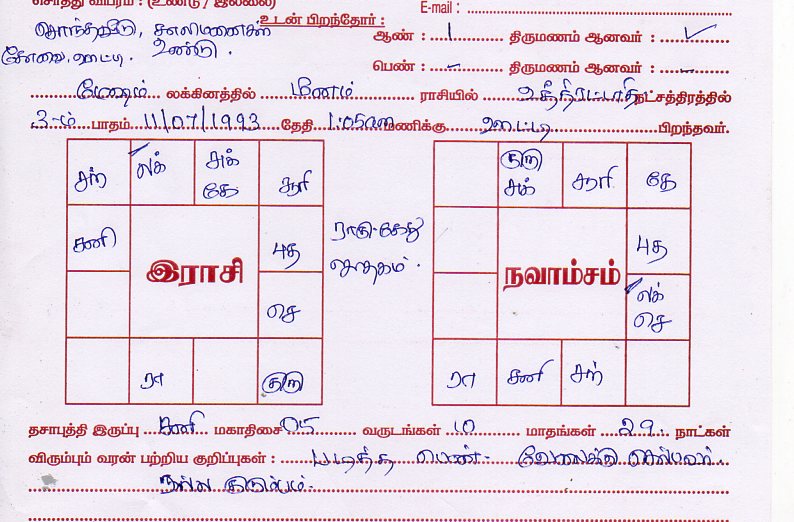 சொத்து விபரம் : (உண்டு / இல்லை)
E-mail :
உடன் பிறந்தோர் :
சொந்தவீடு, காலிமனைகள்
ஆண் : 1 திருமணம் ஆனவர் : ✓
கோவை, ஊட்டி. உண்டு.
பெண் : - திருமணம் ஆனவர் : -
மேஷம் லக்கினத்தில் மீனம் ராசியில் உத்திரட்டாதி நட்சத்திரத்தில்
3-ம் பாதம் 11/07/1993 தேதி 1.05am மணிக்கு ஊட்டி பிறந்தவர்.
சந் லக் சுக் கே சூரி
சனி புத
இராசி
செ
ரா குரு
ராகு-கேது
ஜாதகம்.
குரு சுக் சூரி கே
புத
நவாம்சம்
லக் செ
ரா சனி சந்
தசாபுத்தி இருப்பு சனி மகாதிசை 05 வருடங்கள் 10 மாதங்கள் 29 நாட்கள்
விரும்பும் வரன் பற்றிய குறிப்புகள் : படித்த பெண். வேலைக்கு செல்பவர்
நல்ல குடும்பம்.